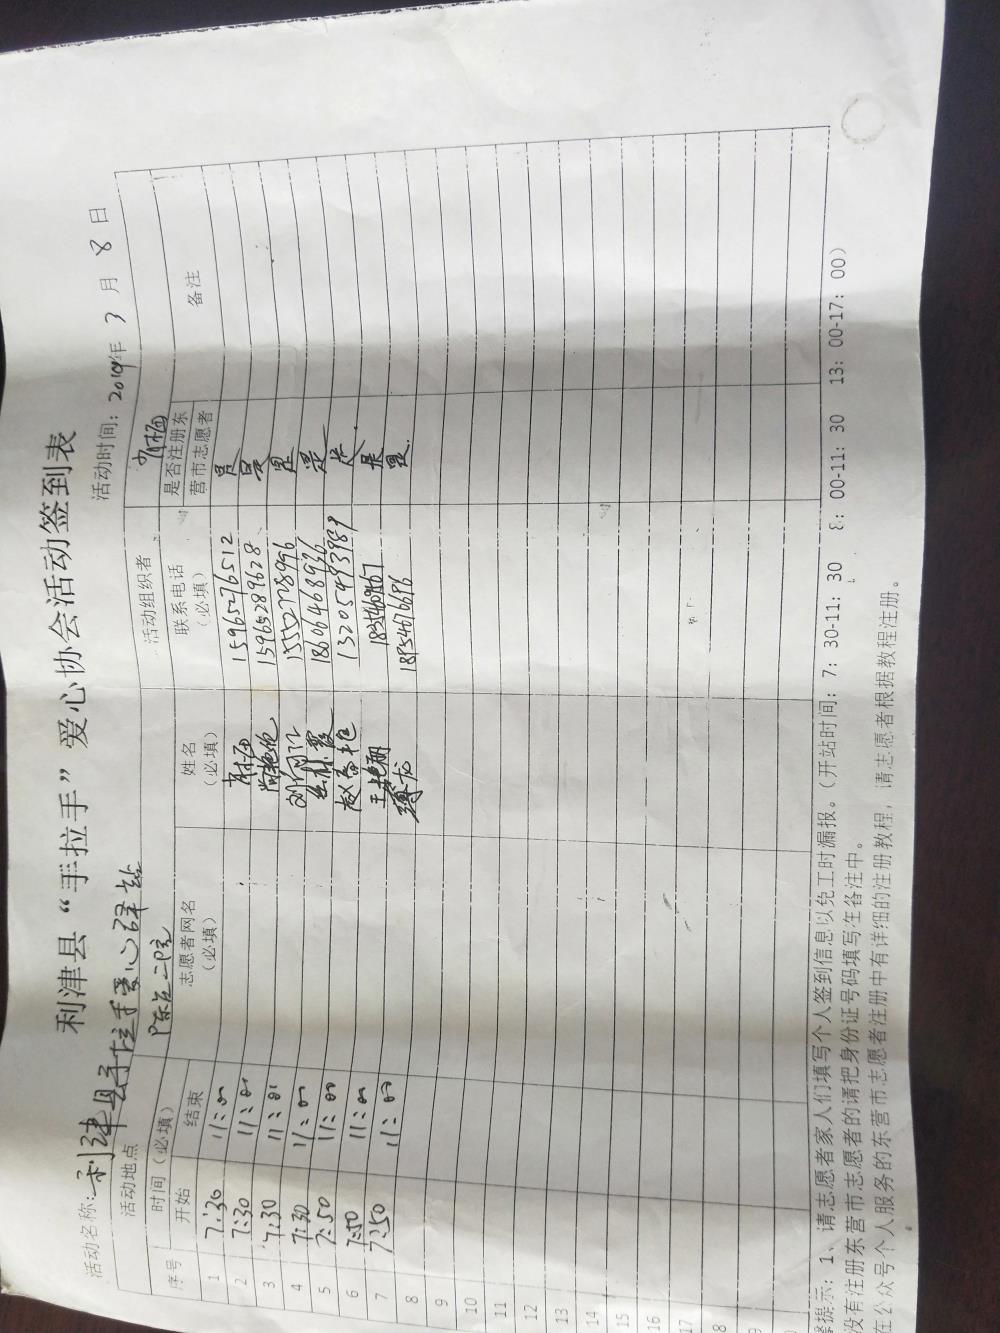 利津县“手拉手”爱心协会活动签到表
活动名称: 利津县手拉手爱心驿站 活动时间: 2019年 3 月 8 日
活动地点 陈庄二院 活动组织者
序号 时间（必填） 志愿者网名（必填） 姓名（必填） 联系电话（必填） 是否注册东营市志愿者 备注
开始 结束
1 7:30 11:00 15965276512 是
2 7:30 11:00 15965289628 是
3 7:30 11:00 是
4 7:30 11:00 18606468936 是
5 7:50 11:00 赵春艳 13205483989 是
6 7:50 11:00 王艳丽 是
7 7:50 11:00 是
8
9
10
11
12
13
14
15
16
17
8
9
提示: 1、请志愿者家人们填写个人签到信息以免工时漏报。(开站时间: 7: 30-11: 30 8: 00-11: 30 13: 00-17: 00)
没有注册东营市志愿者的请把身份证号码填写在备注中。
在公众号个人服务的东营市志愿者注册中有详细的注册教程, 请志愿者根据教程注册。